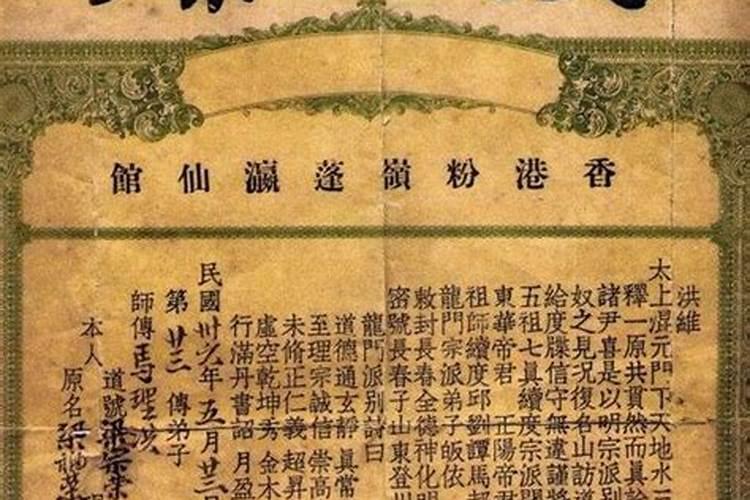 香港粉嶺蓬瀛仙館
洪維
太上混元門下天地水
釋一原共貫然而眞
諸尹喜是以明宗派別
奴之見況復名山訪道
給度牒信守無違謹將
五祖七眞續度宗派
東華帝君 正陽帝君
祖師續度邱劉譚馬郝
龍門宗派弟子皈依
敕封長春全德神化明
密號長春子山東登州
龍門派別詩曰
道德通玄靜 眞常
至理宗誠信 崇高
未脩正仁義 超昇
虛空乾坤秀 金木
行滿丹書詔 月盈
民國卅六年五月廿三日
第廿三傳弟子
師傳馬聖
本人
道號梁宗榮
原名梁